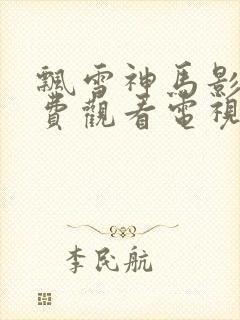 飄雪神馬影
費觀看電視
李民航